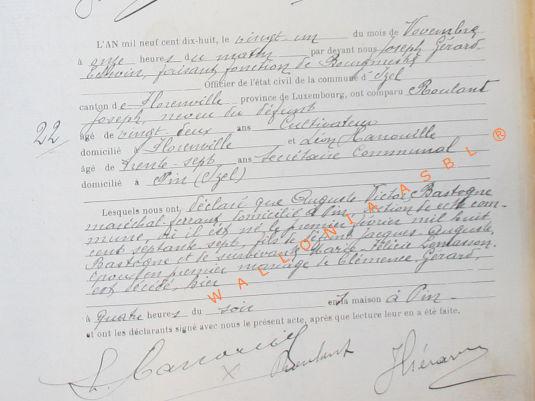 L'AN mil neuf cent dix-huit, le vingt-un du mois de Novembre
à onze heures du matin par devant nous Joseph Gérard,
Echevin, faisant fonction de Bourgmestre
Officier de l'état civil de la commune d'Izel
canton de Florenville province de Luxembourg, ont comparu Roulant
Joseph, neveu du défunt
22
âgé de vingt deux ans Cultivateur
domicilié à Florenville et Léon Hanouille
âgé de trente-sept ans Secrétaire Communal
domicilié à Pin (Izel)
Lesquels nous ont déclaré que Auguste Victor Bastogne
maréchal-ferrant domicilié à Pin, section de cette com-
mune, où il est né le premier février mil huit
cent septante sept, fils de défunt Jacques Auguste
Bastogne et de survivante Marie Alicie
époux en premier mariage de Clémence Gérard,
est décédé hier
à quatre heures du soir en sa maison à Pin
et ont les déclarants signé avec nous le présent acte, après que lecture leur en a été faite.
Roulant
WALLONIA ASBL ®